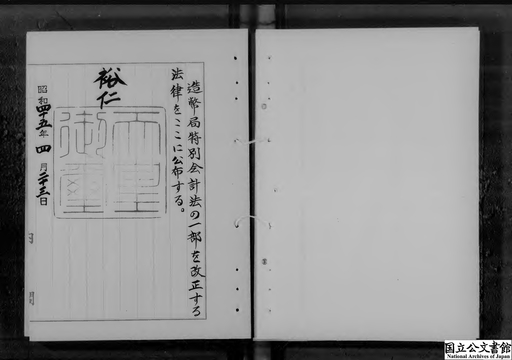 造幣局特別会計法の一部を改正する
法律をここに公布する。
裕仁
天皇
御璽
昭和四十五年四月二十三日
国立公文書館
National Archives of Japan